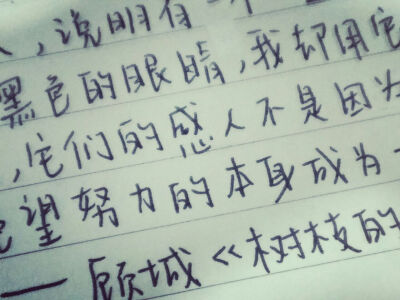 ，说明有一个
黑色的眼睛，我却用它
，它们的感人不是因为
望努力的本身成为一
——顾城《树枝的